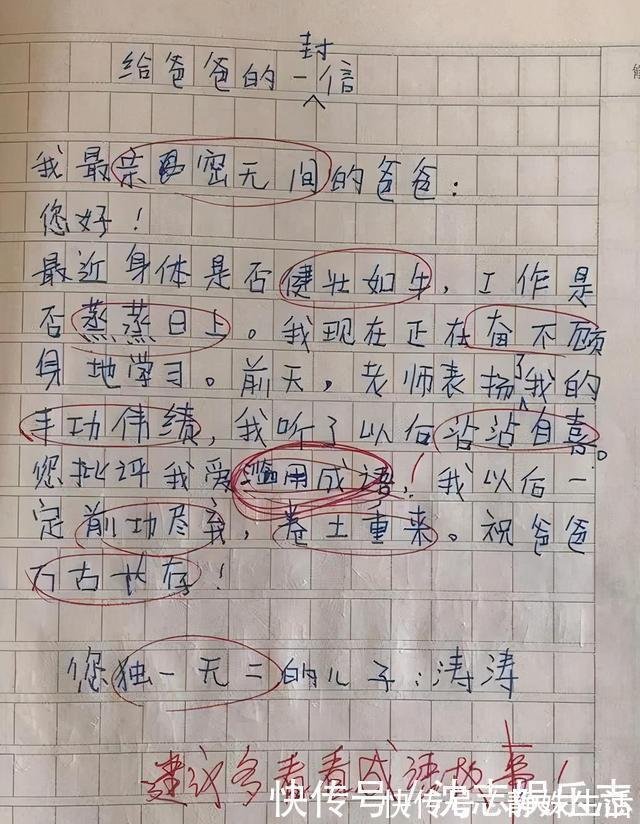 给爸爸的一封信
我最亲密无间的爸爸:
您好!
最近身体是否健壮如牛,工作是
否蒸蒸日上。我现在正在奋不顾
身地学习。前天,老师表扬了我的
丰功伟绩,我听了以后沾沾自喜。
您批评我爱滥用成语!我以后一
定前功尽弃,卷土重来。祝爸爸
万古长存!
您独一无二的儿子:涛涛
建议多看看成语故事!
快传号/